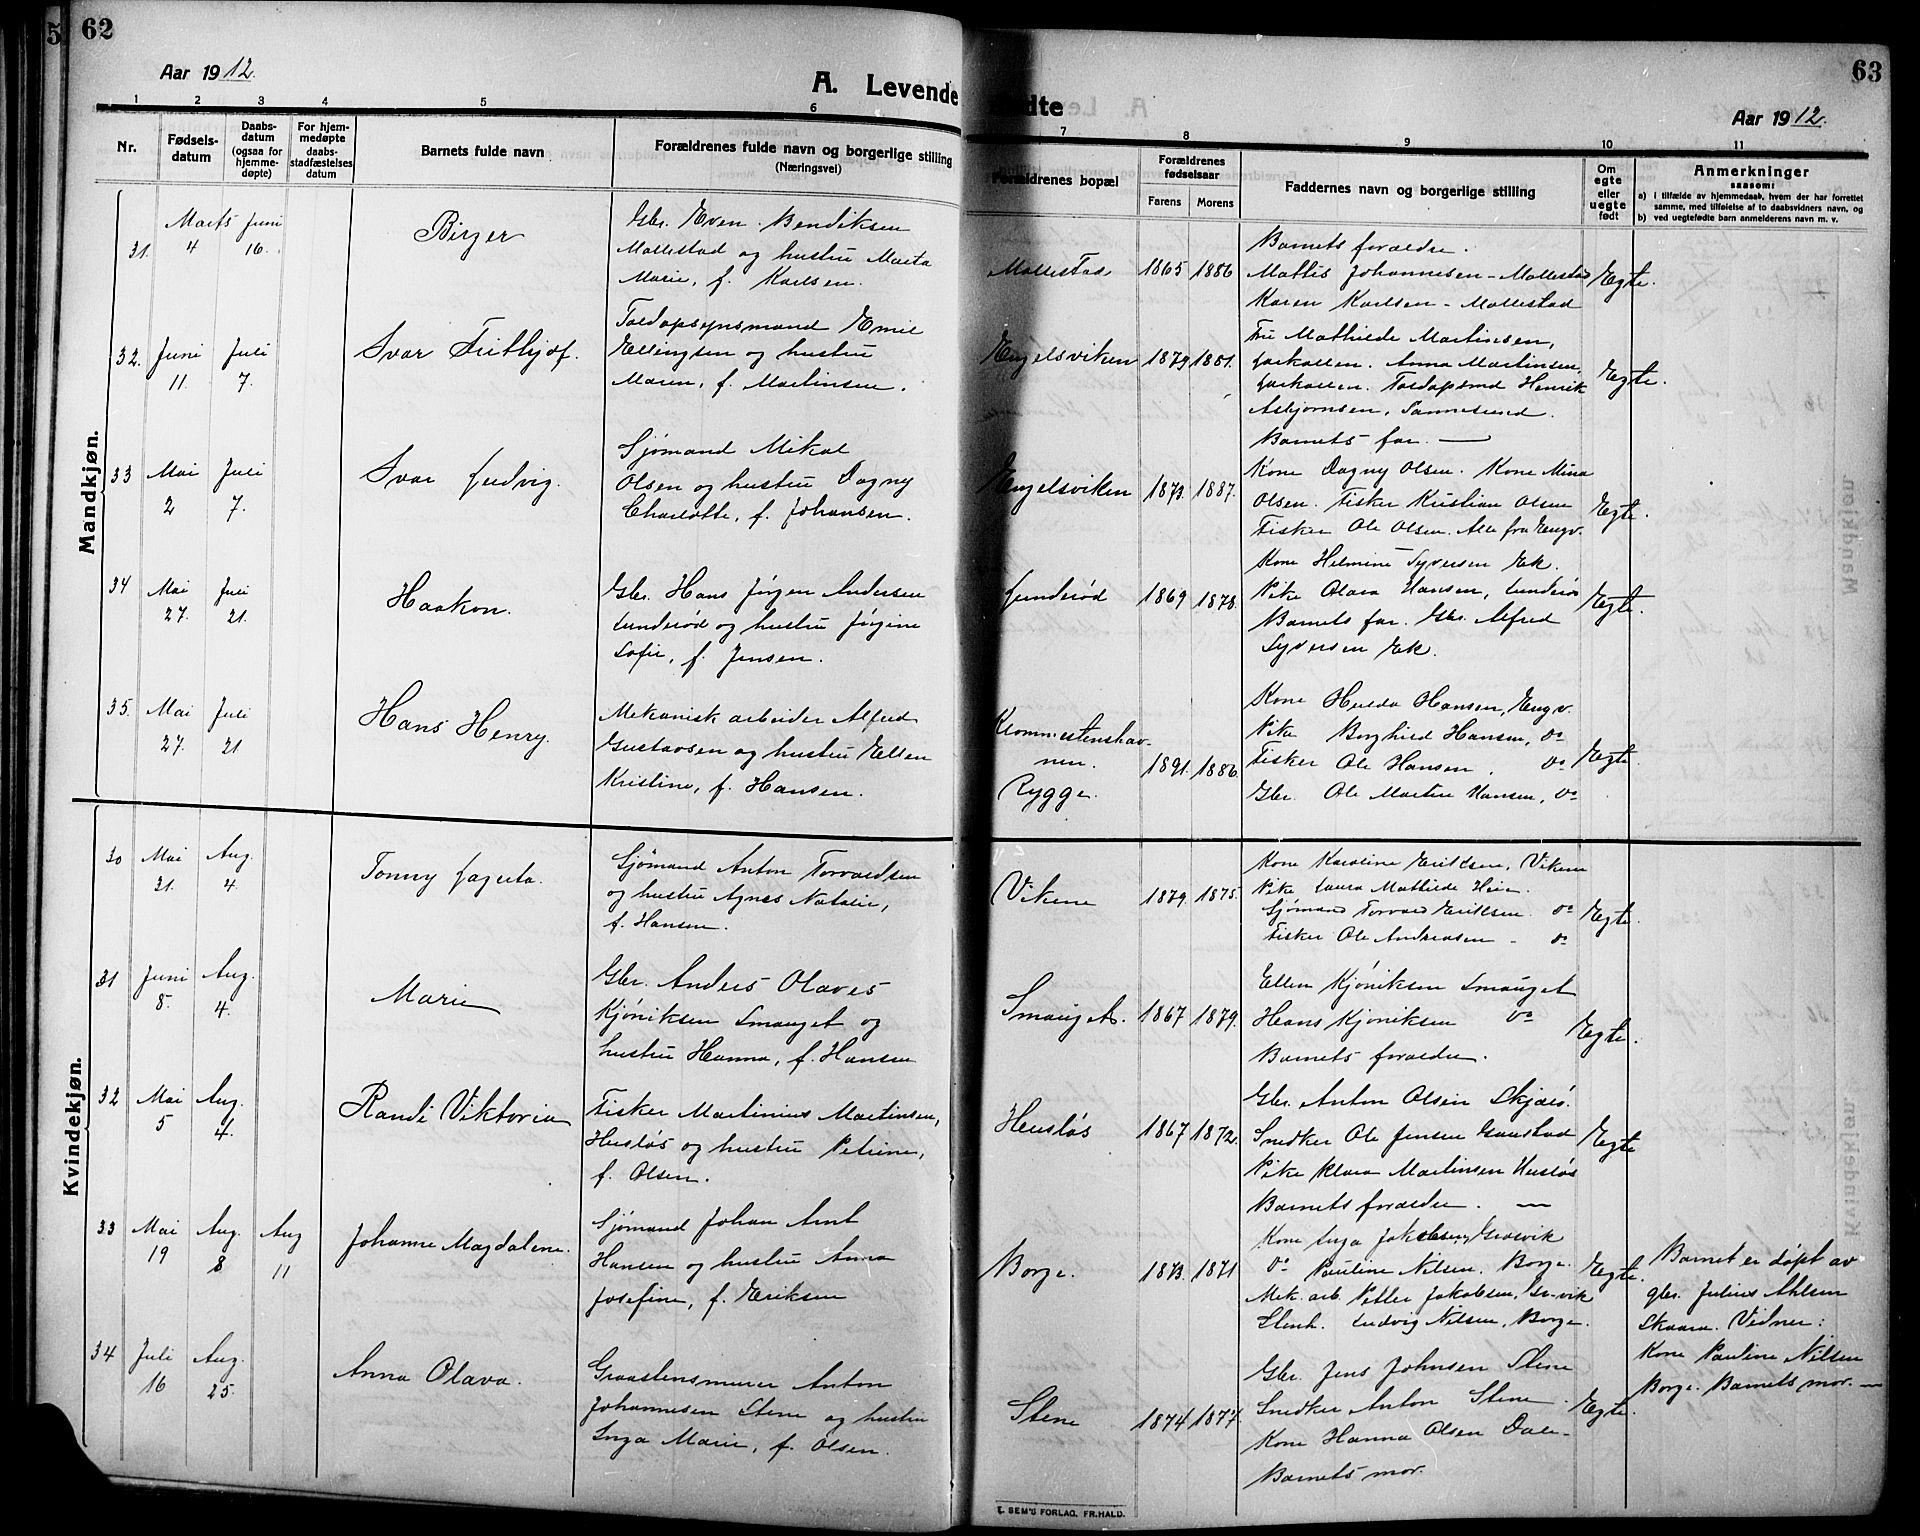 62
Aar 1912.
A. Levende
1 2 3 4 5 6
Nr.
Fødsels-
datum
Daabs-
datum
(ogsaa for
hjemme-
døpte)
For hjem-
medøpte
daabs-
stadfæstelses
datum
Barnets fulde navn
Forældrenes fulde navn og borgerlige stilling
(Næringsvei)
Mandkjøn.
31. Marts 4 Juni 16. Birger
Gbr. Even Bendiksen
Mollestad og hustru Marta
Marie, f. Karlsen.
32. Juni 11. Juli 7. Ivar Frithjof.
Toldopsynsmand Emil
Ellingsen og hustru
Maren, f. Martinsen.
33 Mai 2 Juli 7. Ivar Ludvig.
Sjømand Mikal
Olsen og hustru Dagny
Charlotte, f. Johansen.
34 Mai 27. Juli 21. Haakon.
Gbr. Hans Jørgen Andersen
Lunderød og hustru Jørgine
Sofie, f. Jensen.
35. Mai 27. Juli 21 Hans Henry.
Mekanisk arbeider Alfred
Gustavsen og hustru Ellen
Kristine, f. Hansen.
Kvindekjøn.
30 Mai 21. Aug. 4. Tonny Jagerta.
Sjømand Anton Torvaldsen
og hustru Agnes Natalie,
f. Hansen.
31 Juni 8. Aug. 4. Marie
Gbr. Anders Olaves
Kjøniksen Smauget og
hustru Hanna, f. Hansen
32 Mai 5 Aug. 4. Randi Viktoria
Fisker Martinius Martinsen,
Husløs og hustru Petrine,
f. Olsen.
33 Mai 19 Aug. 8 Aug 11 Johanne Magdalene.
Sjømand Johan Arnt
Hansen og hustru Anna
Josefine, f. Eriksen
34 Juli 16 Aug. 25. Anna Olava.
Graastensmurer Anton
Johannesen Stene og hustru
Inga Marie, f. Olsen.
63
fødte
Aar 1912.
7 8 9 10 11
Forældrenes bopæl
Forældrenes
fødselsaar
Farens Morens
Faddernes navn og borgerlige stilling
Om
egte
eller
uegte
født
Anmerkninger
saasom:
a) i tilfælde av hjemmedaab, hvem der har forrettet
samme, med tilføielse af to daabsvidners navn, og
b) ved uegtefødte barn anmelderens navn m. v.
Mollestad 1865 1886 Egte.
Barnets forældre.
Mattis Johannesen - Mollestad
Karen Karlsen - Mollestad
Engelsviken 1879 1881. Egte.
Fru Mathilde Martinsen,
Larkollen. Anna Martinsen,
Larkollen. Toldopsmd Henrik
Asbjørnsen, Sannesund.
Barnets far. —
Engelsviken 1873. 1887. Egte.
Kone Dagny Olsen. Kone Mina
Olsen. Fisker Kristian Olsen
Fisker Ole Olsen. Alle fra Engv.
Lunderød 1869 1878. Egte.
Kone Helmine Syversen Ek.
Pike Olava Hansen, Lunderød
Barnets far. Gbr. Alfred
Syversen Ek.
Krommestenshav-
nen.
Rygge. 1891. 1886. Egte.
Kone Hulda Hansen, Engv.
Pike Borghild Hansen, do
Fisker Ole Hansen. do
Gbr. Ole Martin Hansen, do
Vikene 1879. 1875. Egte.
Kone Karoline Eriksen, Vikene
Pike Laura Mathilde Heie.
Sjømand Torvald Eriksen. do
Fisker Ole Andreasen - do
Smauget. 1867 1879. Egte.
Ellen Kjøniksen Smauget
Hans Kjøniksen do
Barnets forældre.
Husløs 1867 1872. Egte
Gbr. Anton Olsen Skjærs.
Snedker Ole Jensen Gaustad
Pike Klara Martinsen Husløs
Barnets forældre. —
Borge. 1873. 1871 Egte.
Kone Inga Jakobsen, Gresvik
do Pauline Nilsen, Borge.
Mek. arb. Petter Jakobsen, Gr.vik
Stenh. Ludvig Nilsen, Borge.
Barnet er døpt av
gbr. Julius Ahlsen
Skaara. Vidner:
Kone Pauline Nilsen
Borge. Barnets mor. —
Stene 1874 1877. Egte.
Gbr. Jens Johnsen Stene
Snedker Anton Stene.
Kone Hanna Olsen Dale-
Barnets mor.
E. SEM'S FORLAG, FR.HALD.